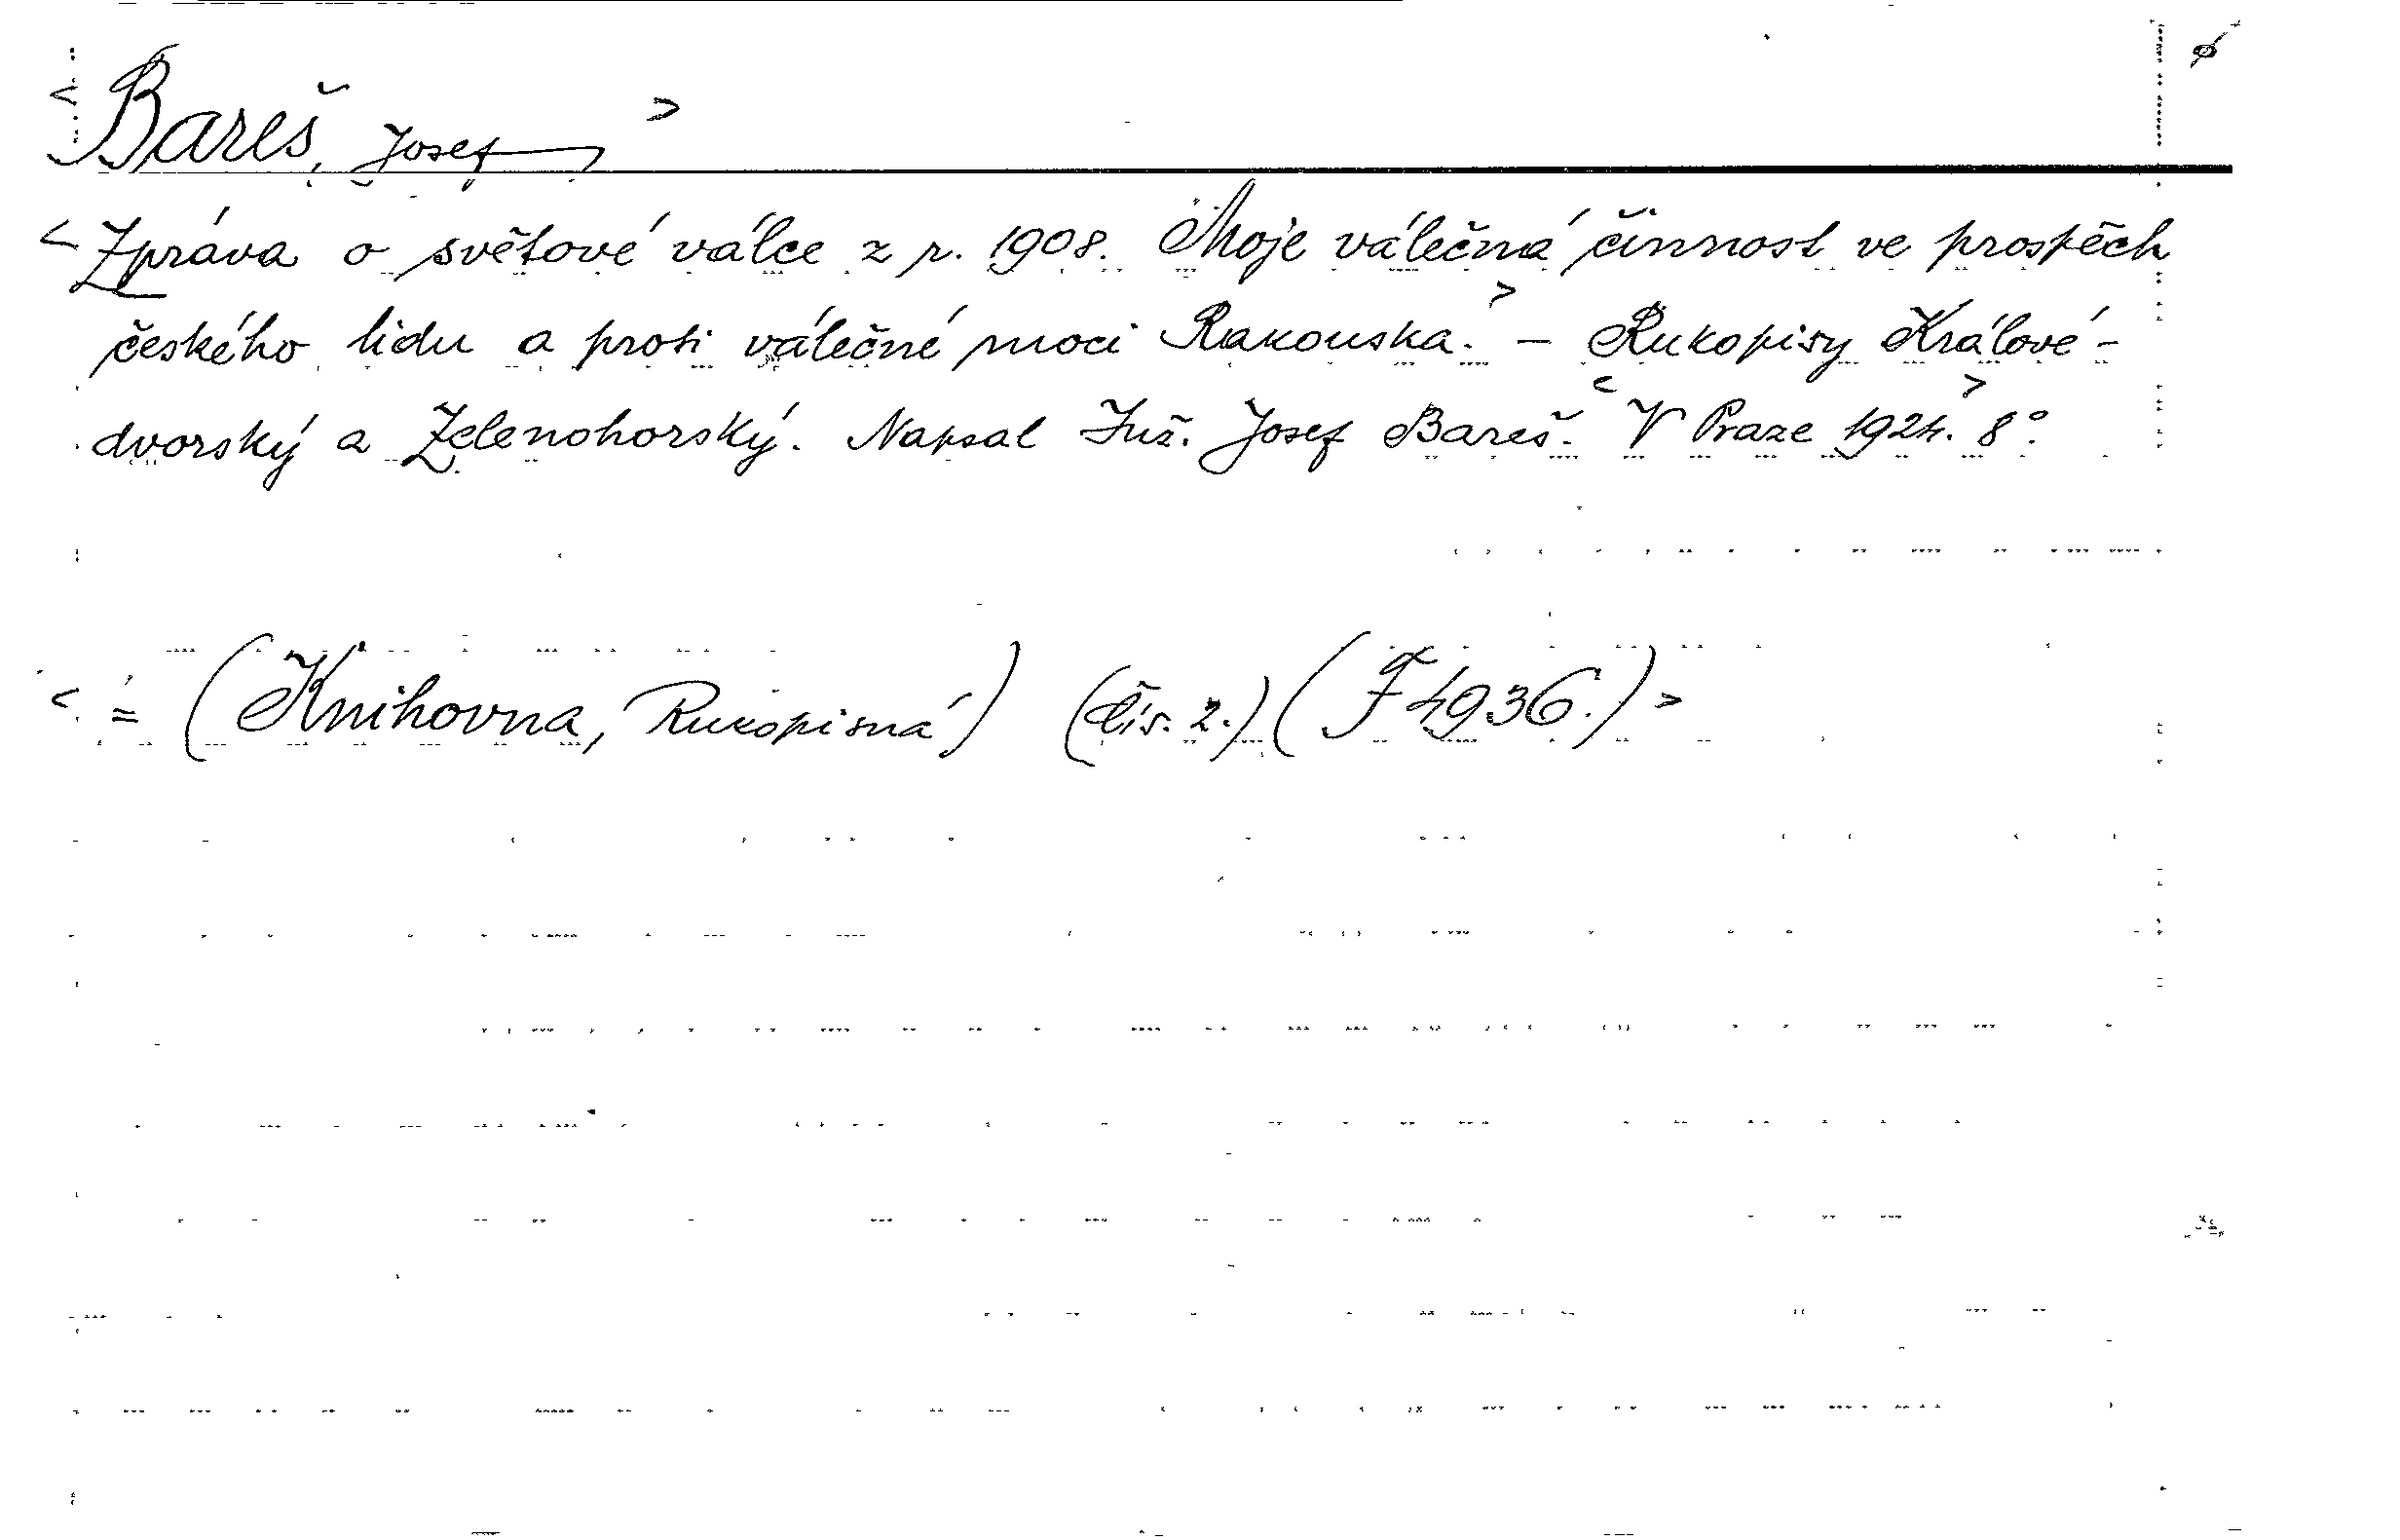 <Bareš, Josef> ø
<Zpráva o světové válce z r. 1908. Moje válečná činnost ve prospěch
českého lidu a proti válečné moci Rakouska.> – Rukopisy Králové-
dvorský a Zelenohorský. Napsal Inž. Josef Bareš. <V Praze 1924.> 8°.
<= (Knihovna, Rukopisná) (čís. 2.) (F 4936.)>